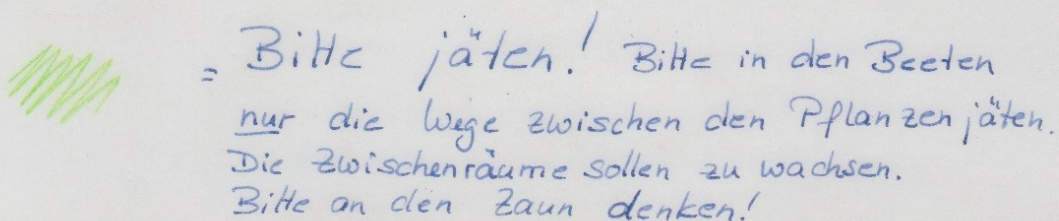 = Bitte jäten! Bitte in den Beeten
nur die Wege zwischen den Pflanzen jäten.
Die Zwischenräume sollen zu wachsen.
Bitte an den Zaun denken!